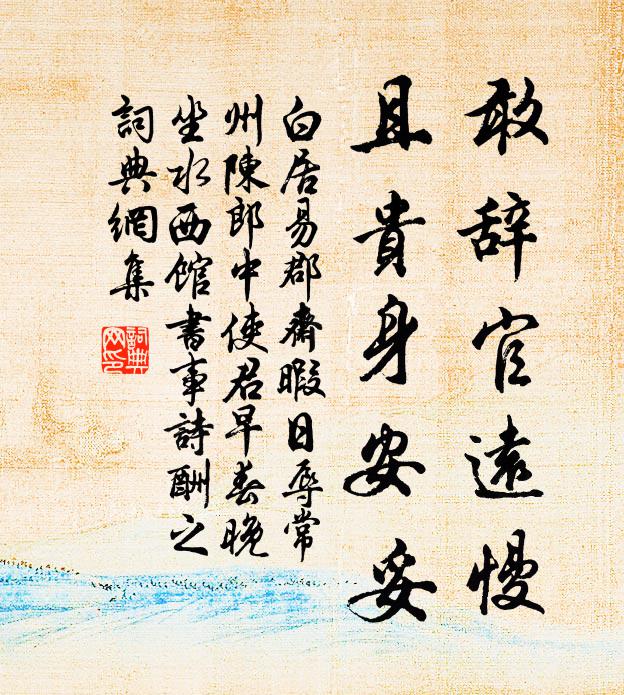 敢辞官遠慢
且貴身安妥
白居易郡齋暇日辱常
州陳郎中使君早春晚
坐水西館書事詩酬之
詞典網集
詞典
网印